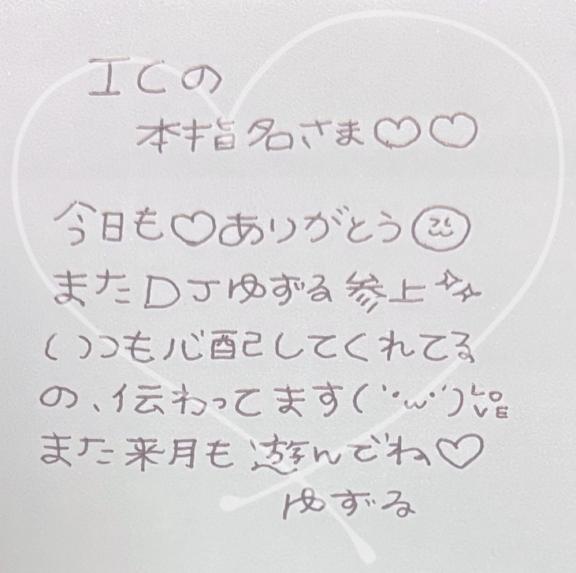 ICの
本指名さま♡♡
今日も♡ありがとう
またDJゆずる参上✧✧
いつも心配してくれてる
の、伝わってます(˙ω˙)LOVE
また来月も遊んでね♡
ゆずる